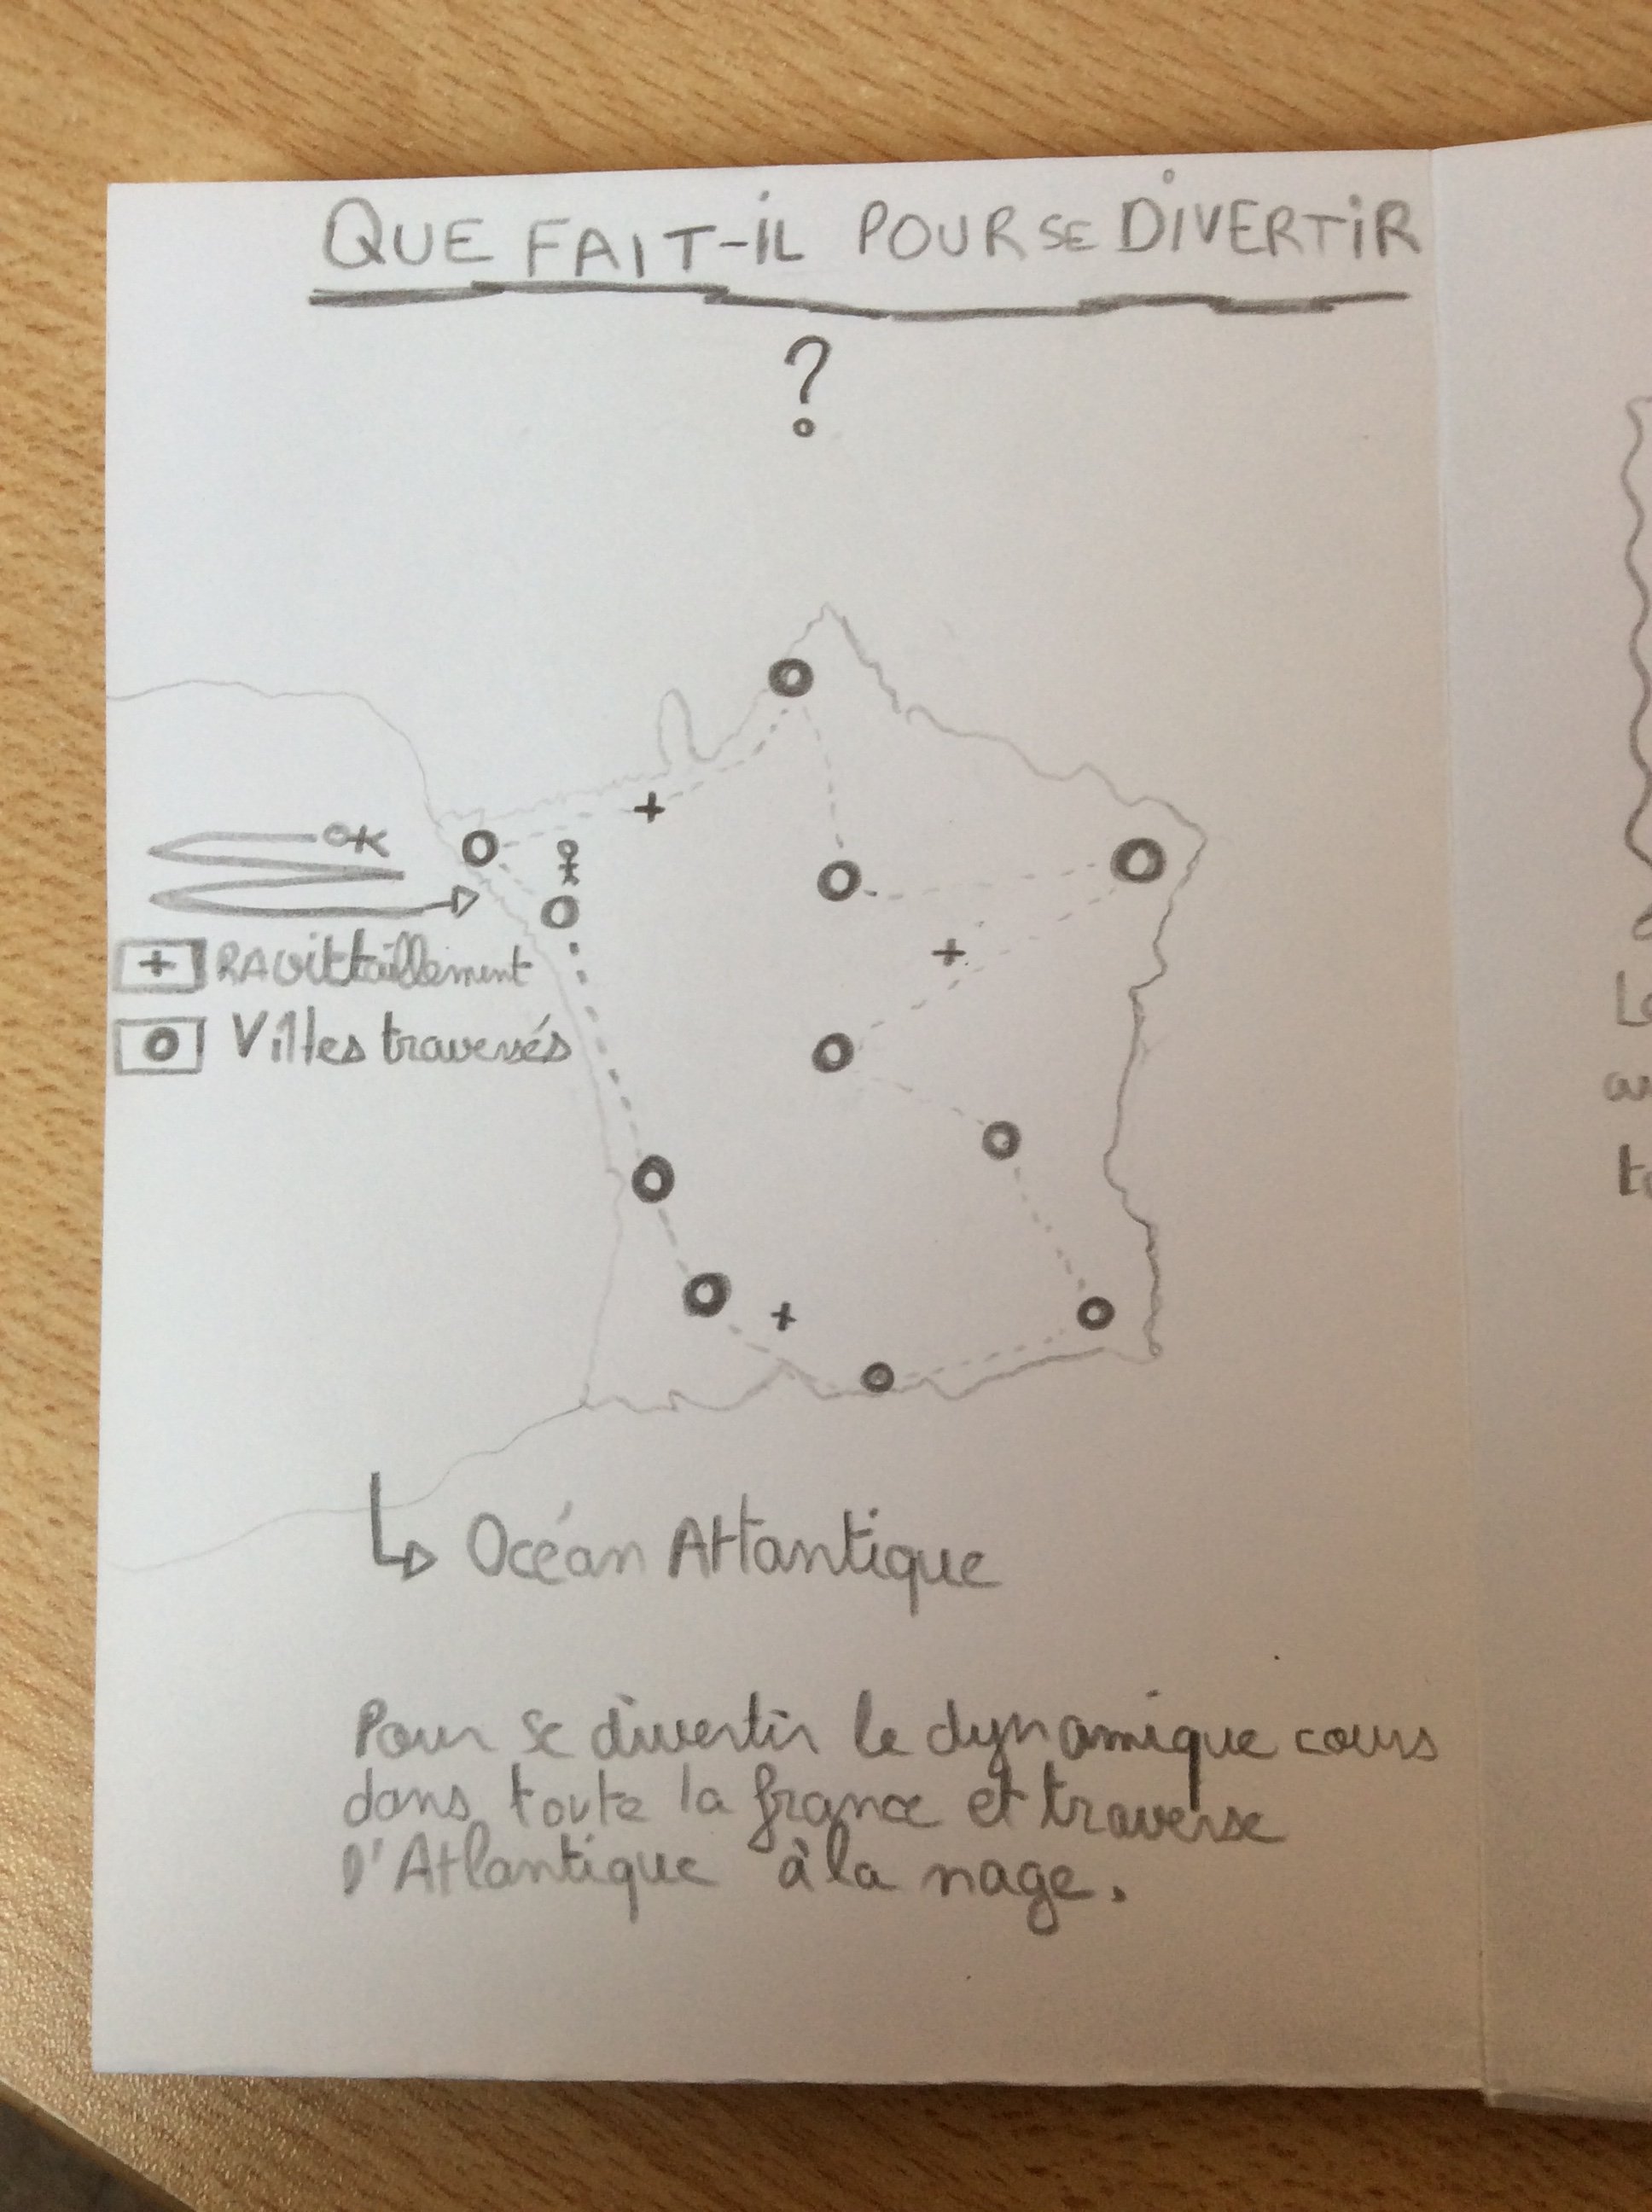 QUE FAIT-iL POUR SE DIVERTiR
?
+ RAVittaillement
O Villes traversés
Océan Atlantique
Pour se divertir le dynamique cours
dans toute la france et traverse
l'Atlantique à la nage.